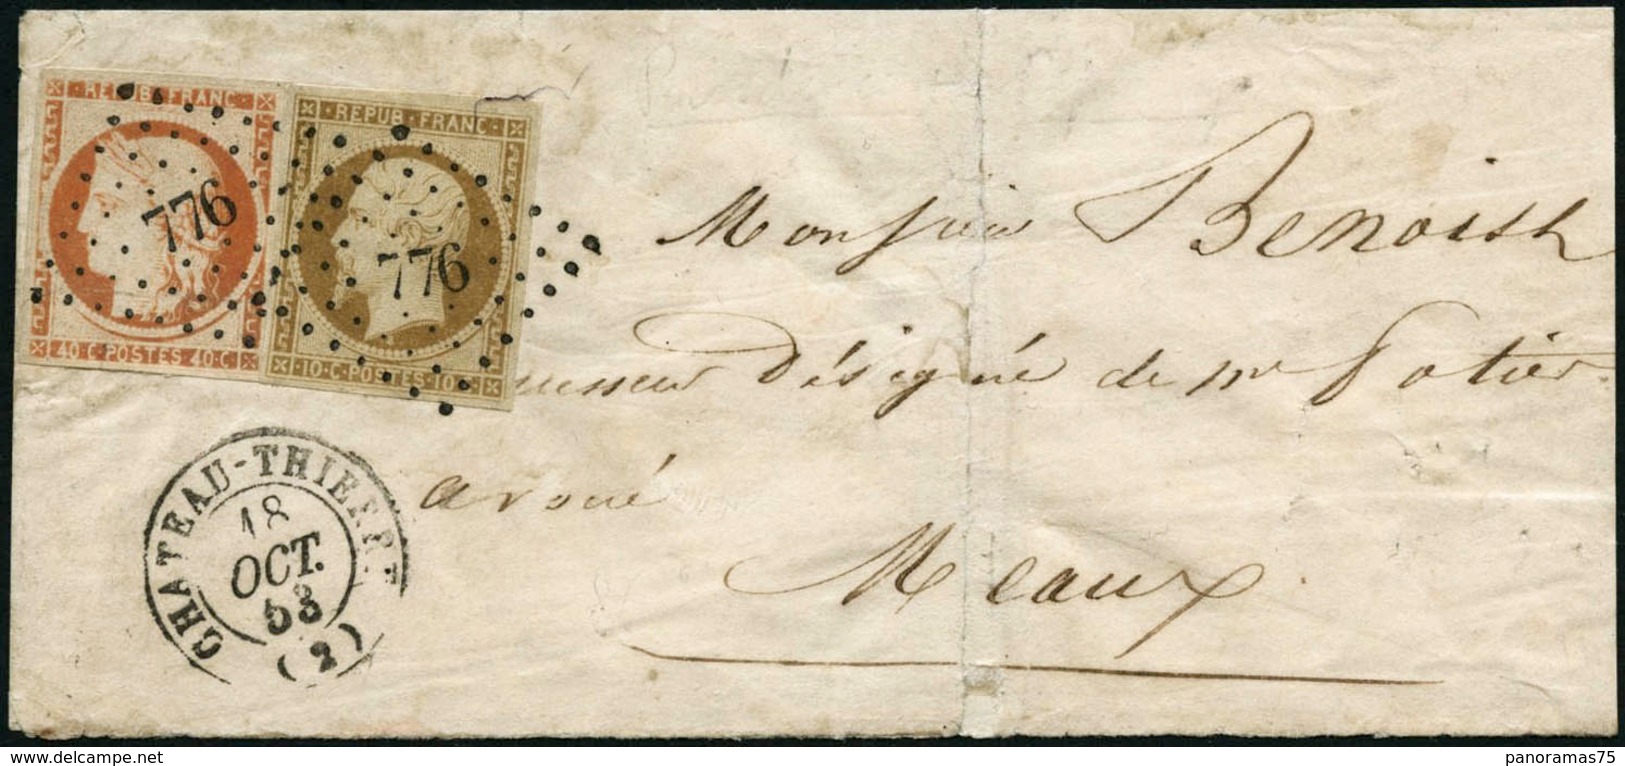 REPUB·FRANC
776
40·C·POSTES 40·C
REPUB·FRANC
776
10·C·POSTES·10·C
Monsieur Benoist
désigné de Mr Potier
avoué
Meaux
CHATEAU-THIERRY
18
OCT.
53
(2)
delcampe.net
panoramas75